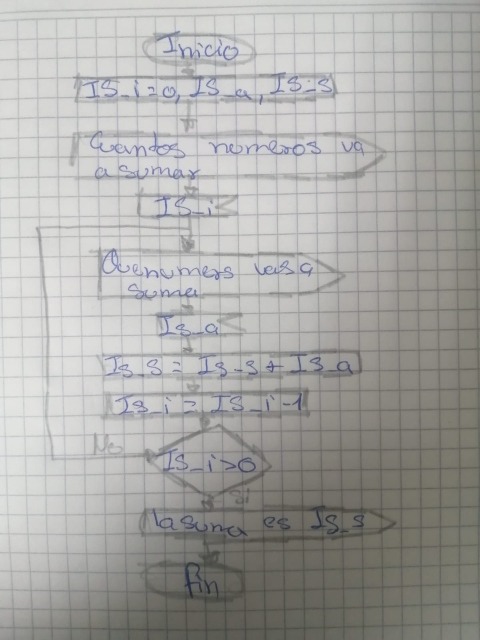 Inicio
IS_i=0, IS_a, IS_S
Cuantos numeros va
a sumar
IS_i
Que numers vas a
suma
Is_a
Is_s = Is_s + IS_a
IS_i = IS_i-1
No
IS_i>0
Si
la suma es Is_s
fin